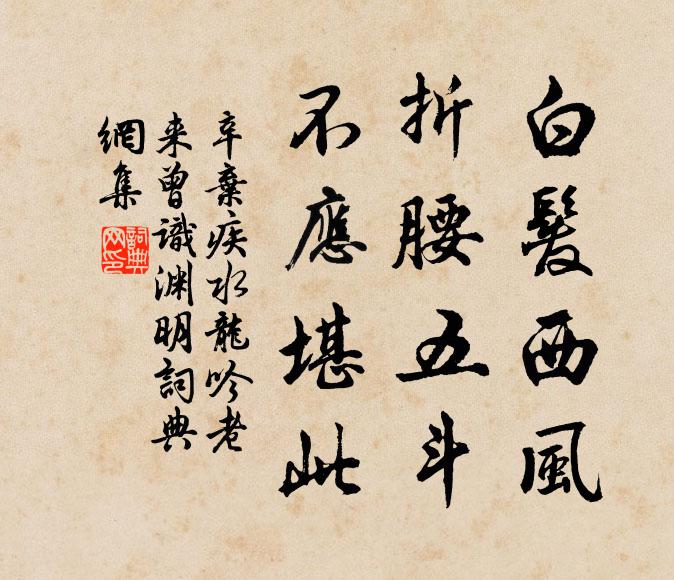 白髮西風
折腰五斗
不應堪此
辛棄疾水龍吟老
来曾識渊明詞典
網集
詞典
网印